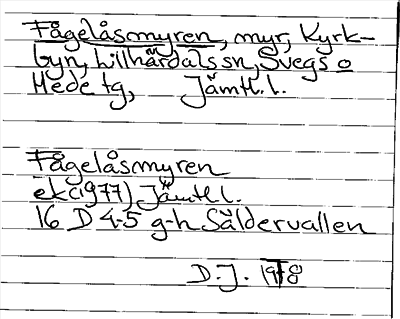 Fågelåsmyren, myr, Kyrk-
byn, Lillhärdals sn, Svegs o
Hede tg, Jämtl. l.
Fågelåsmyren
ek (1977) Jämtl l.
16 D 4-5 g-h Säldervallen
D. J. 1978